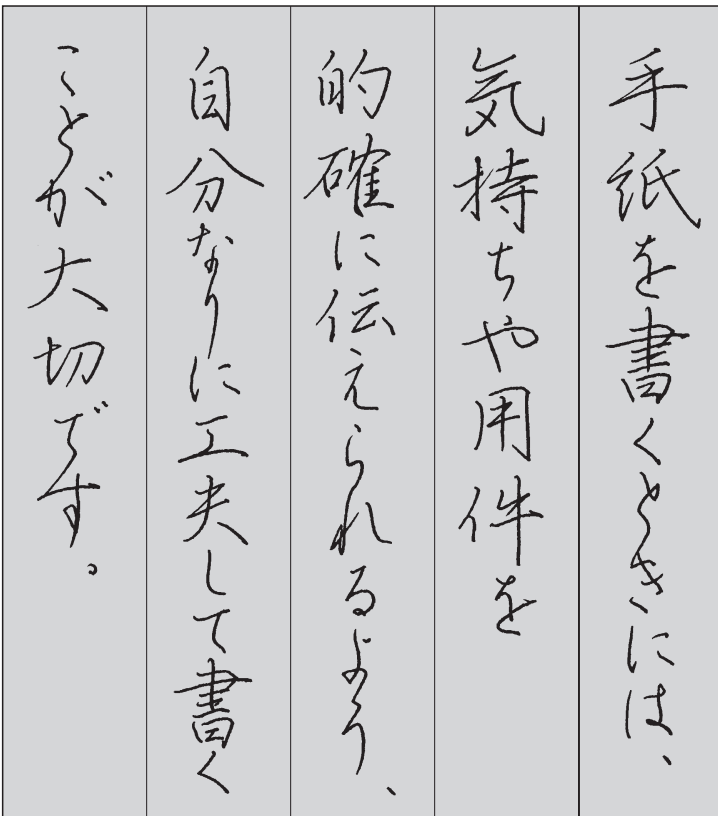 手紙を書くときには、
気持ちや用件を
的確に伝えられるよう、
自分なりに工夫して書く
ことが大切です。